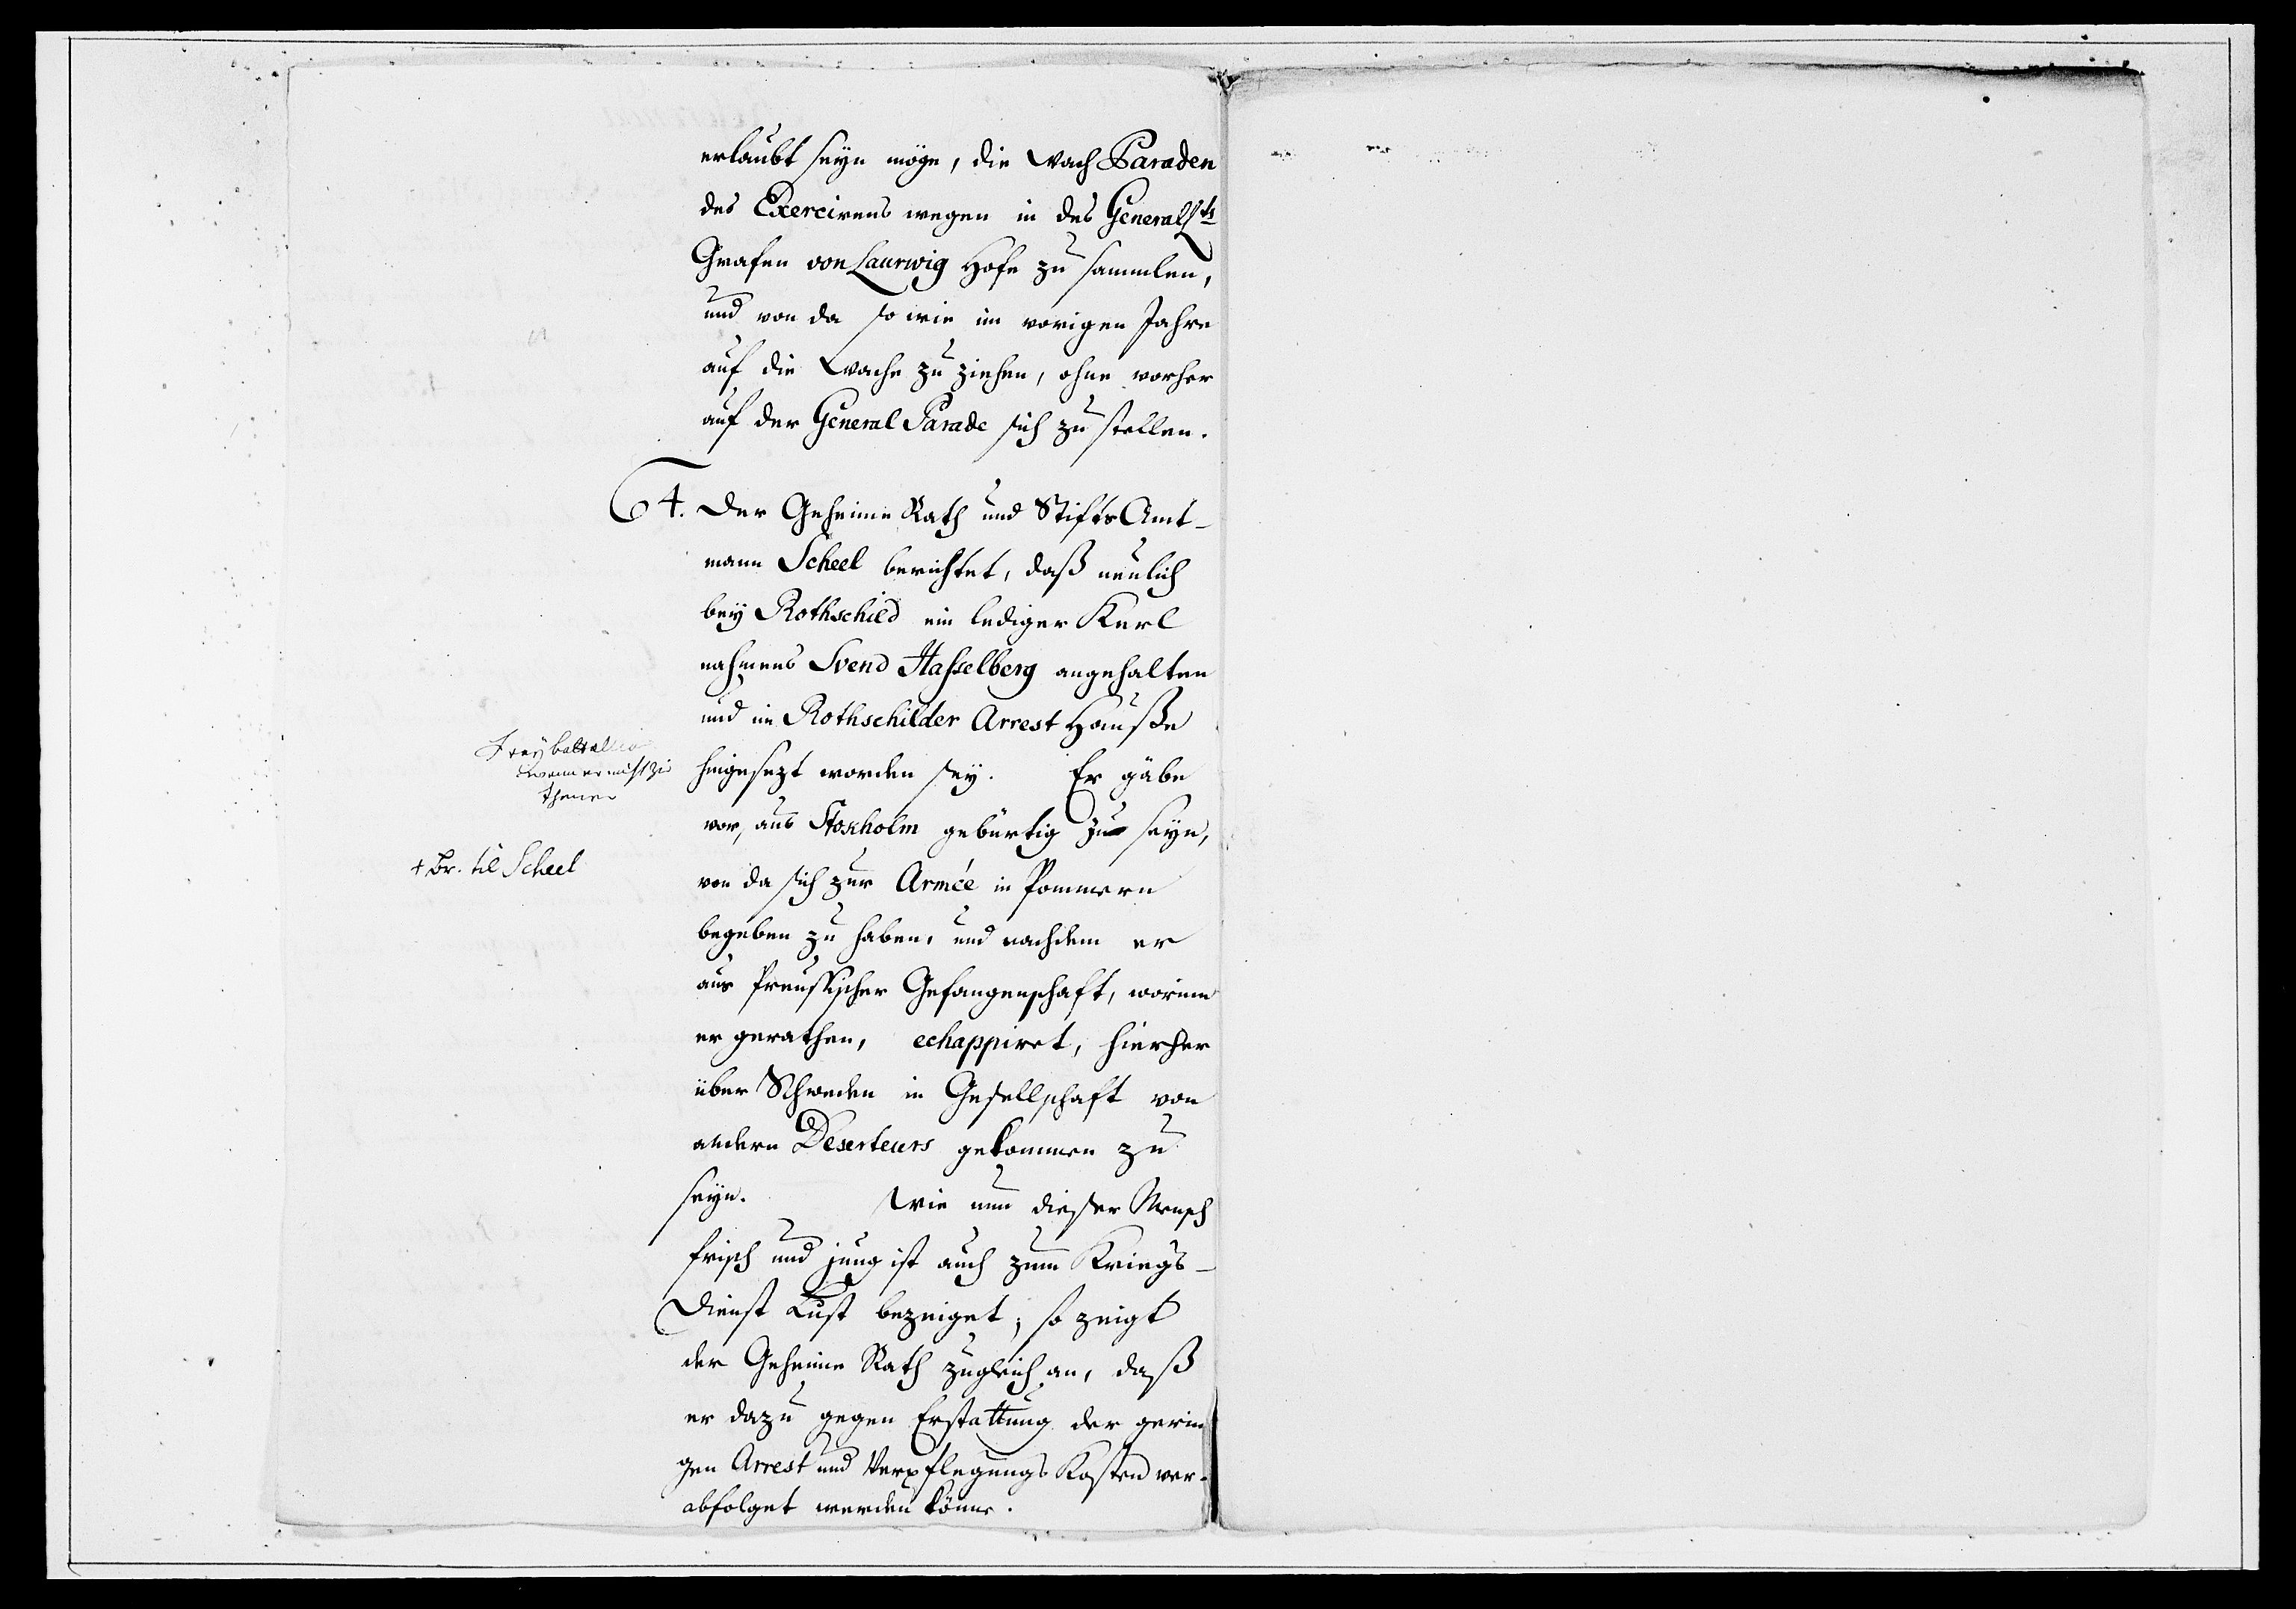 erlaubt seyn möge, die Wach Paraden
des Exercirens wegen in des Generallts
Grafen von Laurwig Hofe zu sammlen,
und von da so wie im vorigen Jahre
auf die Wache zu ziehen, ohne vorher
auf der General Parade sich zu stellen.
4. Der Geheime Rath und Stifts Amt-
mann Scheel berichtet, daß neulich
bey Rothschild ein lediger Kerl
nahmens Svend Hasselberg angehalten
und im Rothschilder Arrest Hauße
hingesezt worden sey. Er gäbe
vor, aus Stokholm gebürtig zu seyn,
von da sich zur Armée in Pommern
begeben zu haben, und nachdem er
aus Preussischer Gefangenschaft, worinn
er gerathen, echappiret, hierher
über Schweden in Gesellschaft von
andern Deserteurs gekommen zu
seyn. Wie nun dieser Mensch
frisch und jung ist auch zum Kriegs-
Dienst Lust bezeiget; so zeigt
der Geheime Rath zugleich an, daß
er dazu gegen Erstattung der gerin
gen Arrest und Verpflegungs Kosten ver-
abfolget werden könne.
Freybataillo
wenn er nicht zu
theuer
+ Br. til Scheel